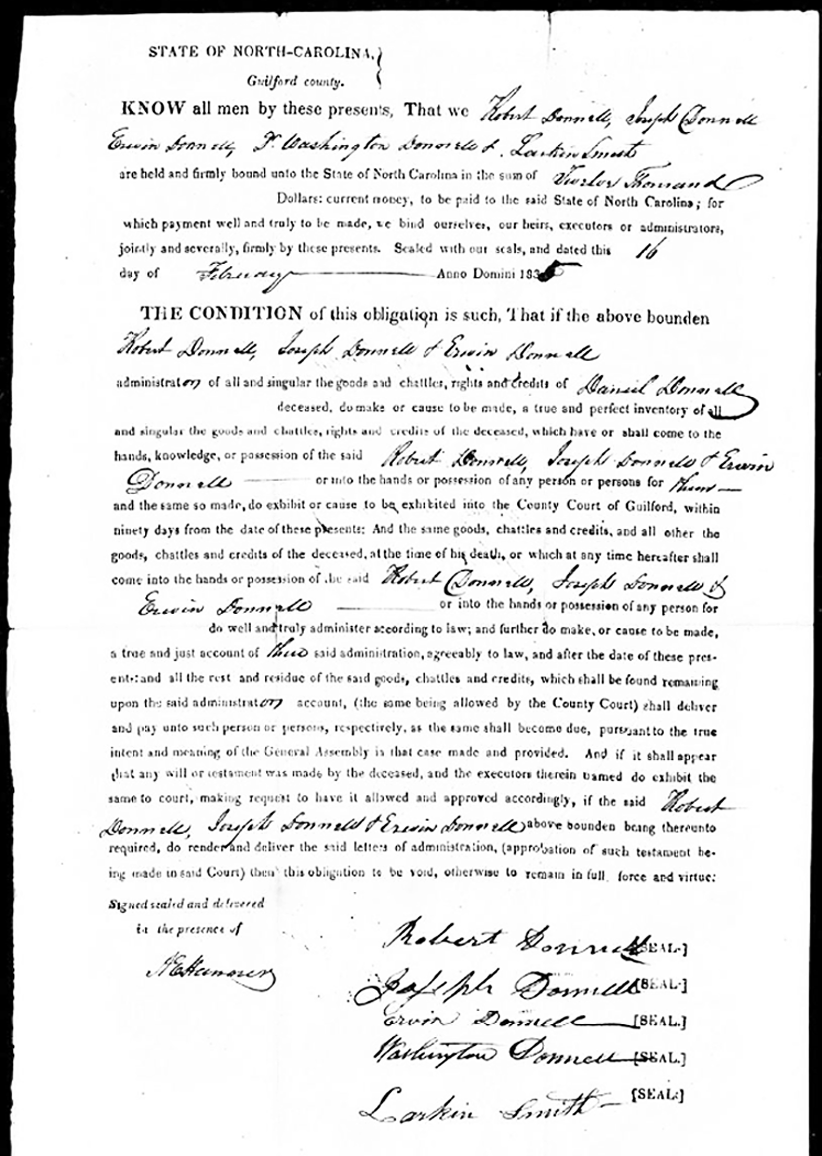 STATE OF NORTH-CAROLINA,
Guilford county.
KNOW all men by these presents, That we Robert Donnell, Joseph Donnell
Erwin Donnell, Washington Donnell & Larkin Smith
are held and firmly bound unto the State of North Carolina in the sum of Twelve Thousand
Dollars: current money, to be paid to the said State of North Carolina; for
which payment well and truly to be made, we bind ourselves, our heirs, executors or administrators,
jointly and severally, firmly by these presents. Sealed with our seals, and dated this 16
day of February Anno Domini 1835
THE CONDITION of this obligation is such, That if the above bounden
Robert Donnell, Joseph Donnell & Erwin Donnell
administrators of all and singular the goods and chattles, rights and credits of Daniel Donnell
deceased, do make or cause to be made, a true and perfect inventory of all
and singular the goods and chattles, rights and credits of the deceased, which have or shall come to the
hands, knowledge, or possession of the said Robert Donnell, Joseph Donnell & Erwin
Donnell or into the hands or possession of any person or persons for them
and the same so made, do exhibit or cause to be exhibited into the County Court of Guilford, within
ninety days from the date of these presents: And the same goods, chattles and credits, and all other the
goods, chattles and credits of the deceased, at the time of his death, or which at any time hereafter shall
come into the hands or possession of the said Robert Donnell, Joseph Donnell &
Erwin Donnell or into the hands or possession of any person for
do well and truly administer according to law; and further do make, or cause to be made,
a true and just account of their said administration, agreeably to law, and after the date of these pres-
ents: and all the rest and residue of the said goods, chattles and credits, which shall be found remaining
upon the said administrators account, (the same being allowed by the County Court) shall deliver
and pay unto such person or persons, respectively, as the same shall become due, pursuant to the true
intent and meaning of the General Assembly in that case made and provided. And if it shall appear
that any will or testament was made by the deceased, and the executors therein named do exhibit the
same to court, making request to have it allowed and approved accordingly, if the said Robert
Donnell, Joseph Donnell & Erwin Donnell above bounden being thereunto
required, do render and deliver the said letters of administration, (approbation of such testament be-
ing made in said Court) then this obligation to be void, otherwise to remain in full force and virtue:
Signed sealed and delivered
in the presence of
Robert Donnell [SEAL.]
Joseph Donnell [SEAL.]
Ervin Donnell [SEAL.]
Washington Donnell [SEAL.]
Larkin Smith [SEAL.]